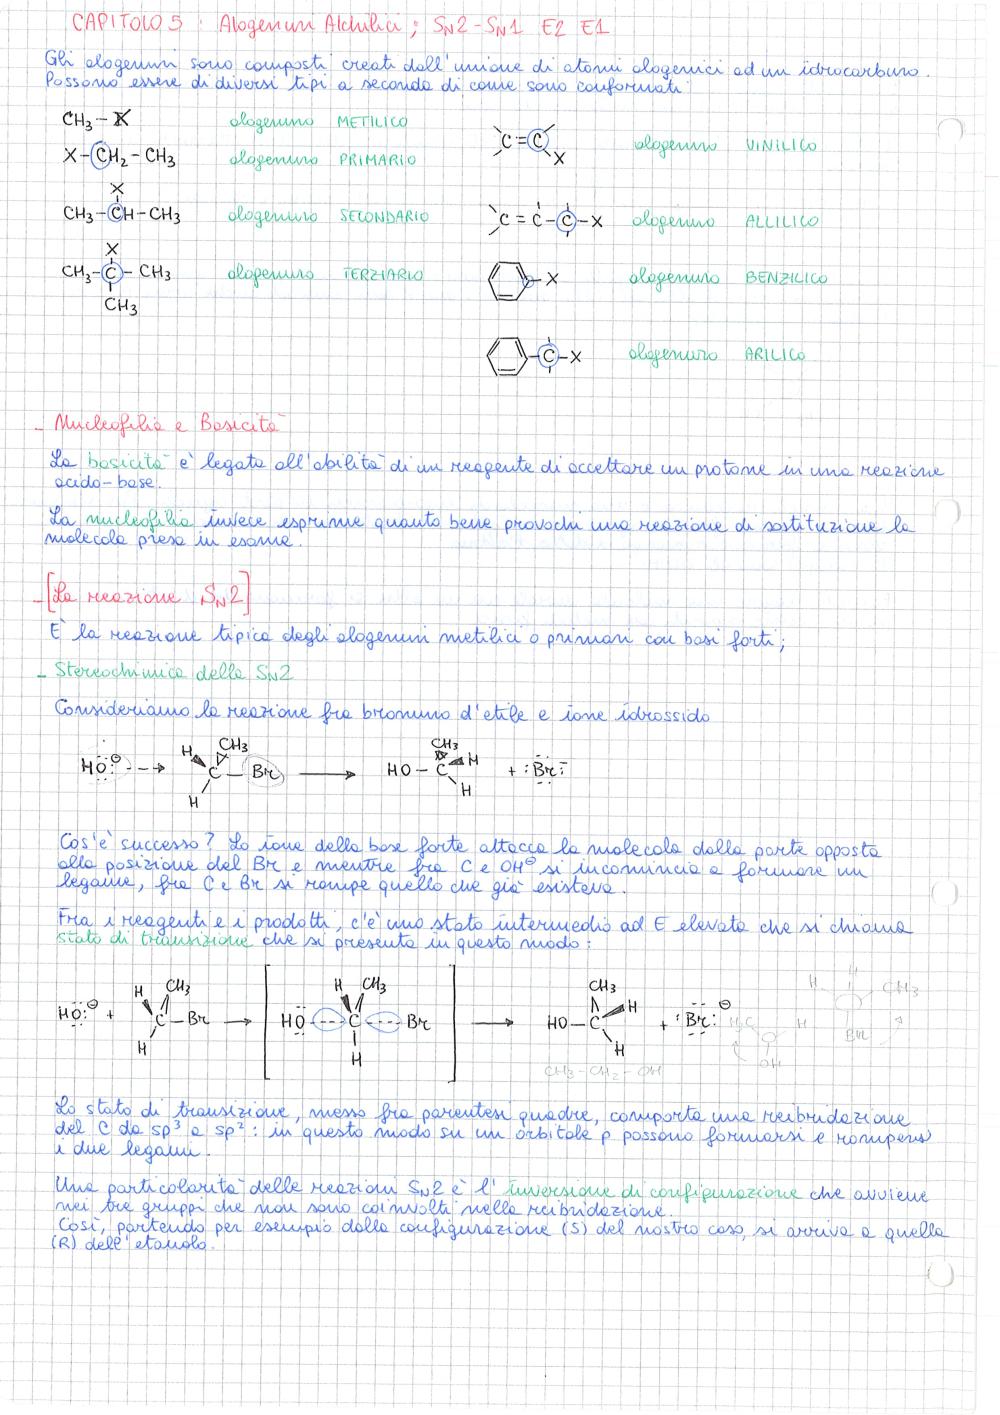 CAPITOLO 5 : Alogenuri Alchilici ; SN2 - SN1 E2 E1
Gli alogenuri sono composti creati dall'unione di atomi alogenici ad un idrocarburo.
Possono essere di diversi tipi a seconda di come sono conformati:
CH3 - X alogenuro METILICO
X - CH2 - CH3 alogenuro PRIMARIO
X
CH3 - CH - CH3 alogenuro SECONDARIO
X
CH3 - C - CH3 alogenuro TERZIARIO
CH3
C = C X alogenuro VINILICO
C = C - C - X alogenuro ALLILICO
X alogenuro BENZILICO
C - X alogenuro ARILICO
- Nucleofilia e Basicità
La basicità è legata all'abilità di un reagente di accettare un protone in una reazione
acido-base.
La nucleofilia invece esprime quanto bene provochi una reazione di sostituzione la
molecola presa in esame.
- [La reazione SN2]
È la reazione tipica degli alogenuri metilici o primari con basi forti;
- Stereochimica della SN2
Consideriamo la reazione fra bromuro d'etile e ione idrossido
HO:⊖ --→ H CH3 C - Br H ⟶ HO - C CH3 H H + :Br:
Cos'è successo? Lo ione della base forte attacca la molecola dalla parte opposta
alla posizione del Br e mentre fra C e OH⊖ si incomincia a formare un
legame, fra C e Br si rompe quello che già esisteva.
Fra i reagenti e i prodotti, c'è uno stato intermedio ad E elevata che si chiama
stato di transizione che si presenta in questo modo:
HO:⊖ + H CH3 C - Br H ⟶ [HO --- C --- Br H CH3 H] ⟶ HO - C CH3 H H + :Br:⊖
CH3 - CH2 - OH
H H CH3 Br
H3C H OH
Lo stato di transizione, messo fra parentesi quadre, comporta una reibridazione
del C da sp3 a sp2 : in questo modo su un orbitale p possono formarsi e rompersi
i due legami.
Una particolarità delle reazioni SN2 è l'inversione di configurazione che avviene
nei tre gruppi che non sono coinvolti nella reibridazione.
Così, partendo per esempio dalla configurazione (S) del nostro caso, si arriva a quella
(R) dell'etanolo.